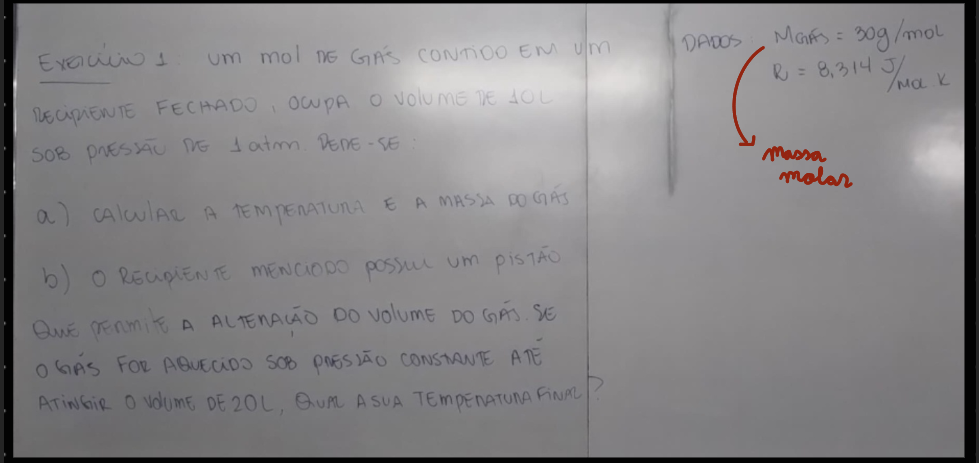 Exercício 1: um mol DE GÁS CONTIDO EM UM
RECIPIENTE FECHADO, OCUPA O VOLUME DE 10L
SOB PRESSÃO DE 1 atm. PEDE-SE:
a) CALCULAR A TEMPERATURA E A MASSA DO GÁS
b) O RECIPIENTE MENCIODO POSSUI UM PISTÃO
QUE PERMITE A ALTERAÇÃO DO VOLUME DO GÁS. SE
O GÁS FOR AQUECIDO SOB PRESSÃO CONSTANTE ATÉ
ATINGIR O VOLUME DE 20L, QUAL A SUA TEMPERATURA FINAL?
DADOS MGÁS = 30g/mol
R = 8,314 J/mol K
massa
molar